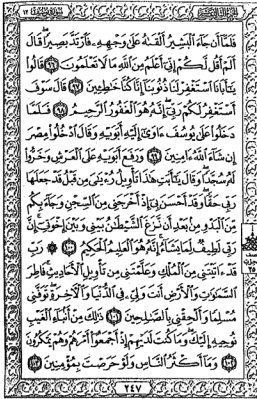 فَلَمَّآ أَن جَآءَ ٱلْبَشِيرُ أَلْقَىٰهُ عَلَىٰ وَجْهِهِۦ فَٱرْتَدَّ بَصِيرًا قَالَ
أَلَمْ أَقُل لَّكُمْ إِنِّىٓ أَعْلَمُ مِنَ ٱللَّهِ مَا لَا تَعْلَمُونَ ٩٦ قَالُوا۟
يَٰٓأَبَانَا ٱسْتَغْفِرْ لَنَا ذُنُوبَنَآ إِنَّا كُنَّا خَٰطِـِٔينَ ٩٧ قَالَ سَوْفَ
أَسْتَغْفِرُ لَكُمْ رَبِّىٓ إِنَّهُۥ هُوَ ٱلْغَفُورُ ٱلرَّحِيمُ ٩٨ فَلَمَّا
دَخَلُوا۟ عَلَىٰ يُوسُفَ ءَاوَىٰٓ إِلَيْهِ أَبَوَيْهِ وَقَالَ ٱدْخُلُوا۟ مِصْرَ
إِن شَآءَ ٱللَّهُ ءَامِنِينَ ٩٩ وَرَفَعَ أَبَوَيْهِ عَلَى ٱلْعَرْشِ وَخَرُّوا۟
لَهُۥ سُجَّدًا وَقَالَ يَٰٓأَبَتِ هَٰذَا تَأْوِيلُ رُءْيَٰىَ مِن قَبْلُ قَدْ جَعَلَهَا
رَبِّى حَقًّا وَقَدْ أَحْسَنَ بِىٓ إِذْ أَخْرَجَنِى مِنَ ٱلسِّجْنِ وَجَآءَ بِكُم
مِّنَ ٱلْبَدْوِ مِنۢ بَعْدِ أَن نَّزَغَ ٱلشَّيْطَٰنُ بَيْنِى وَبَيْنَ إِخْوَتِىٓ إِنَّ
رَبِّى لَطِيفٌ لِّمَا يَشَآءُ إِنَّهُۥ هُوَ ٱلْعَلِيمُ ٱلْحَكِيمُ ١٠٠ رَبِّ
قَدْ ءَاتَيْتَنِى مِنَ ٱلْمُلْكِ وَعَلَّمْتَنِى مِن تَأْوِيلِ ٱلْأَحَادِيثِ فَاطِرَ
ٱلسَّمَٰوَٰتِ وَٱلْأَرْضِ أَنتَ وَلِىِّۦ فِى ٱلدُّنْيَا وَٱلْءَاخِرَةِ تَوَفَّنِى
مُسْلِمًا وَأَلْحِقْنِى بِٱلصَّٰلِحِينَ ١٠١ ذَٰلِكَ مِنْ أَنۢبَآءِ ٱلْغَيْبِ
نُوحِيهِ إِلَيْكَ وَمَا كُنتَ لَدَيْهِمْ إِذْ أَجْمَعُوٓا۟ أَمْرَهُمْ وَهُمْ يَمْكُرُونَ
١٠٢ وَمَآ أَكْثَرُ ٱلنَّاسِ وَلَوْ حَرَصْتَ بِمُؤْمِنِينَ ١٠٣
٢٤٧